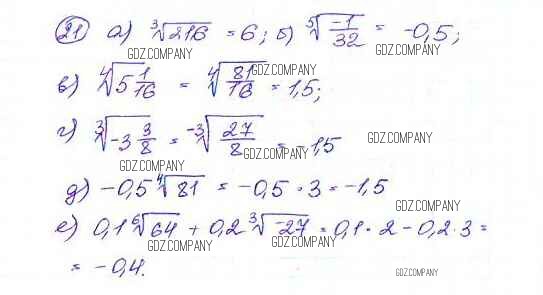 21 а) ∛216 = 6; б) ⁵√(-1/32) = -0,5;
GDZ.COMPANY GDZ.COMPANY
GDZ.COMPANY
в) ⁴√(5 1/16) = ⁴√(81/16) = 1,5;
GDZ.COMPANY
г) ∛(-3 3/8) = -∛(27/8) = -1,5
GDZ.COMPANY GDZ.COMPANY
GDZ.COMPANY
д) -0,5 ⁴√81 = -0,5 · 3 = -1,5
GDZ.COMPANY
е) 0,1 ⁶√64 + 0,2 ∛-27 = 0,1 · 2 - 0,2 · 3 =
GDZ.COMPANY GDZ.COMPANY
= -0,4.
GDZ.COMPANY